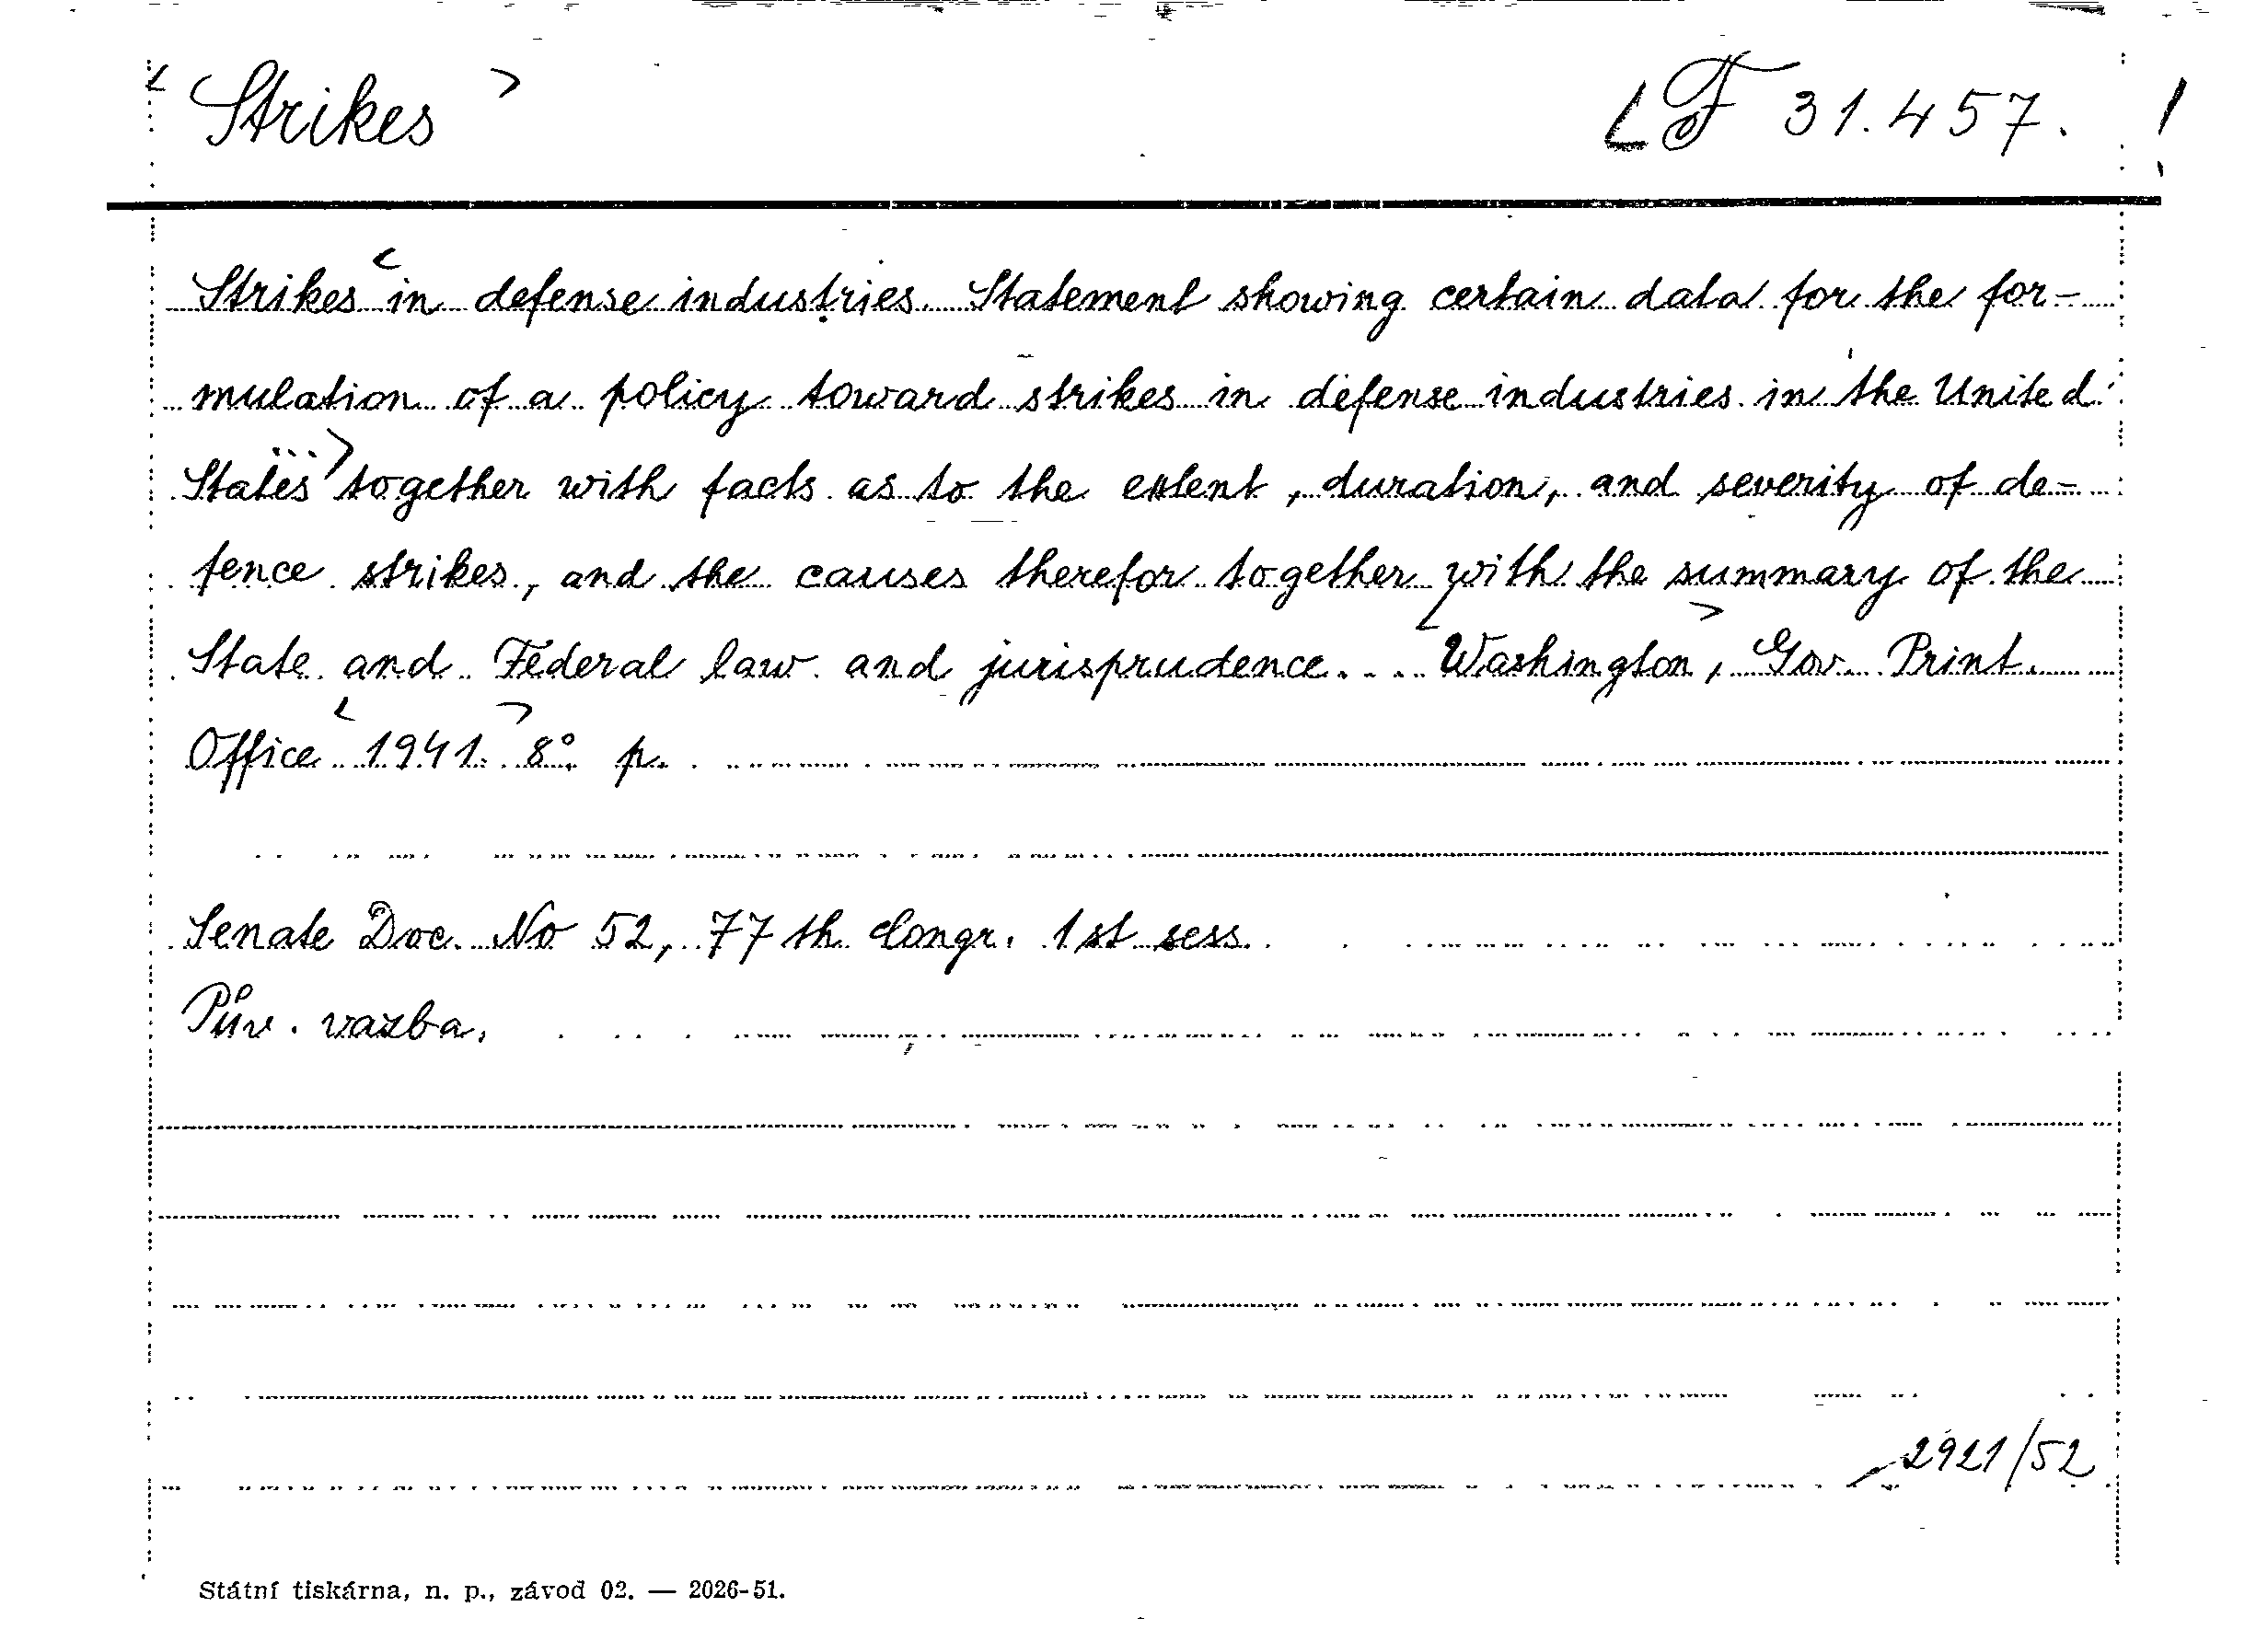 Strikes F 31.457.
Strikes in defense industries. Statement showing certain data for the for-
mulation of a policy toward strikes in defense industries in the United
States together with facts as to the extent, duration, and severity of de-
fence strikes, and the causes therefor together with the summary of the
State and Federal law and jurisprudence... Washington, Gov. Print.
Office 1941. 8°. p.
Senate Doc. No 52, 77th Congr. 1st sess.
Pův. vazba.
2921/52
Státní tiskárna, n. p., závod 02. — 2026-51.